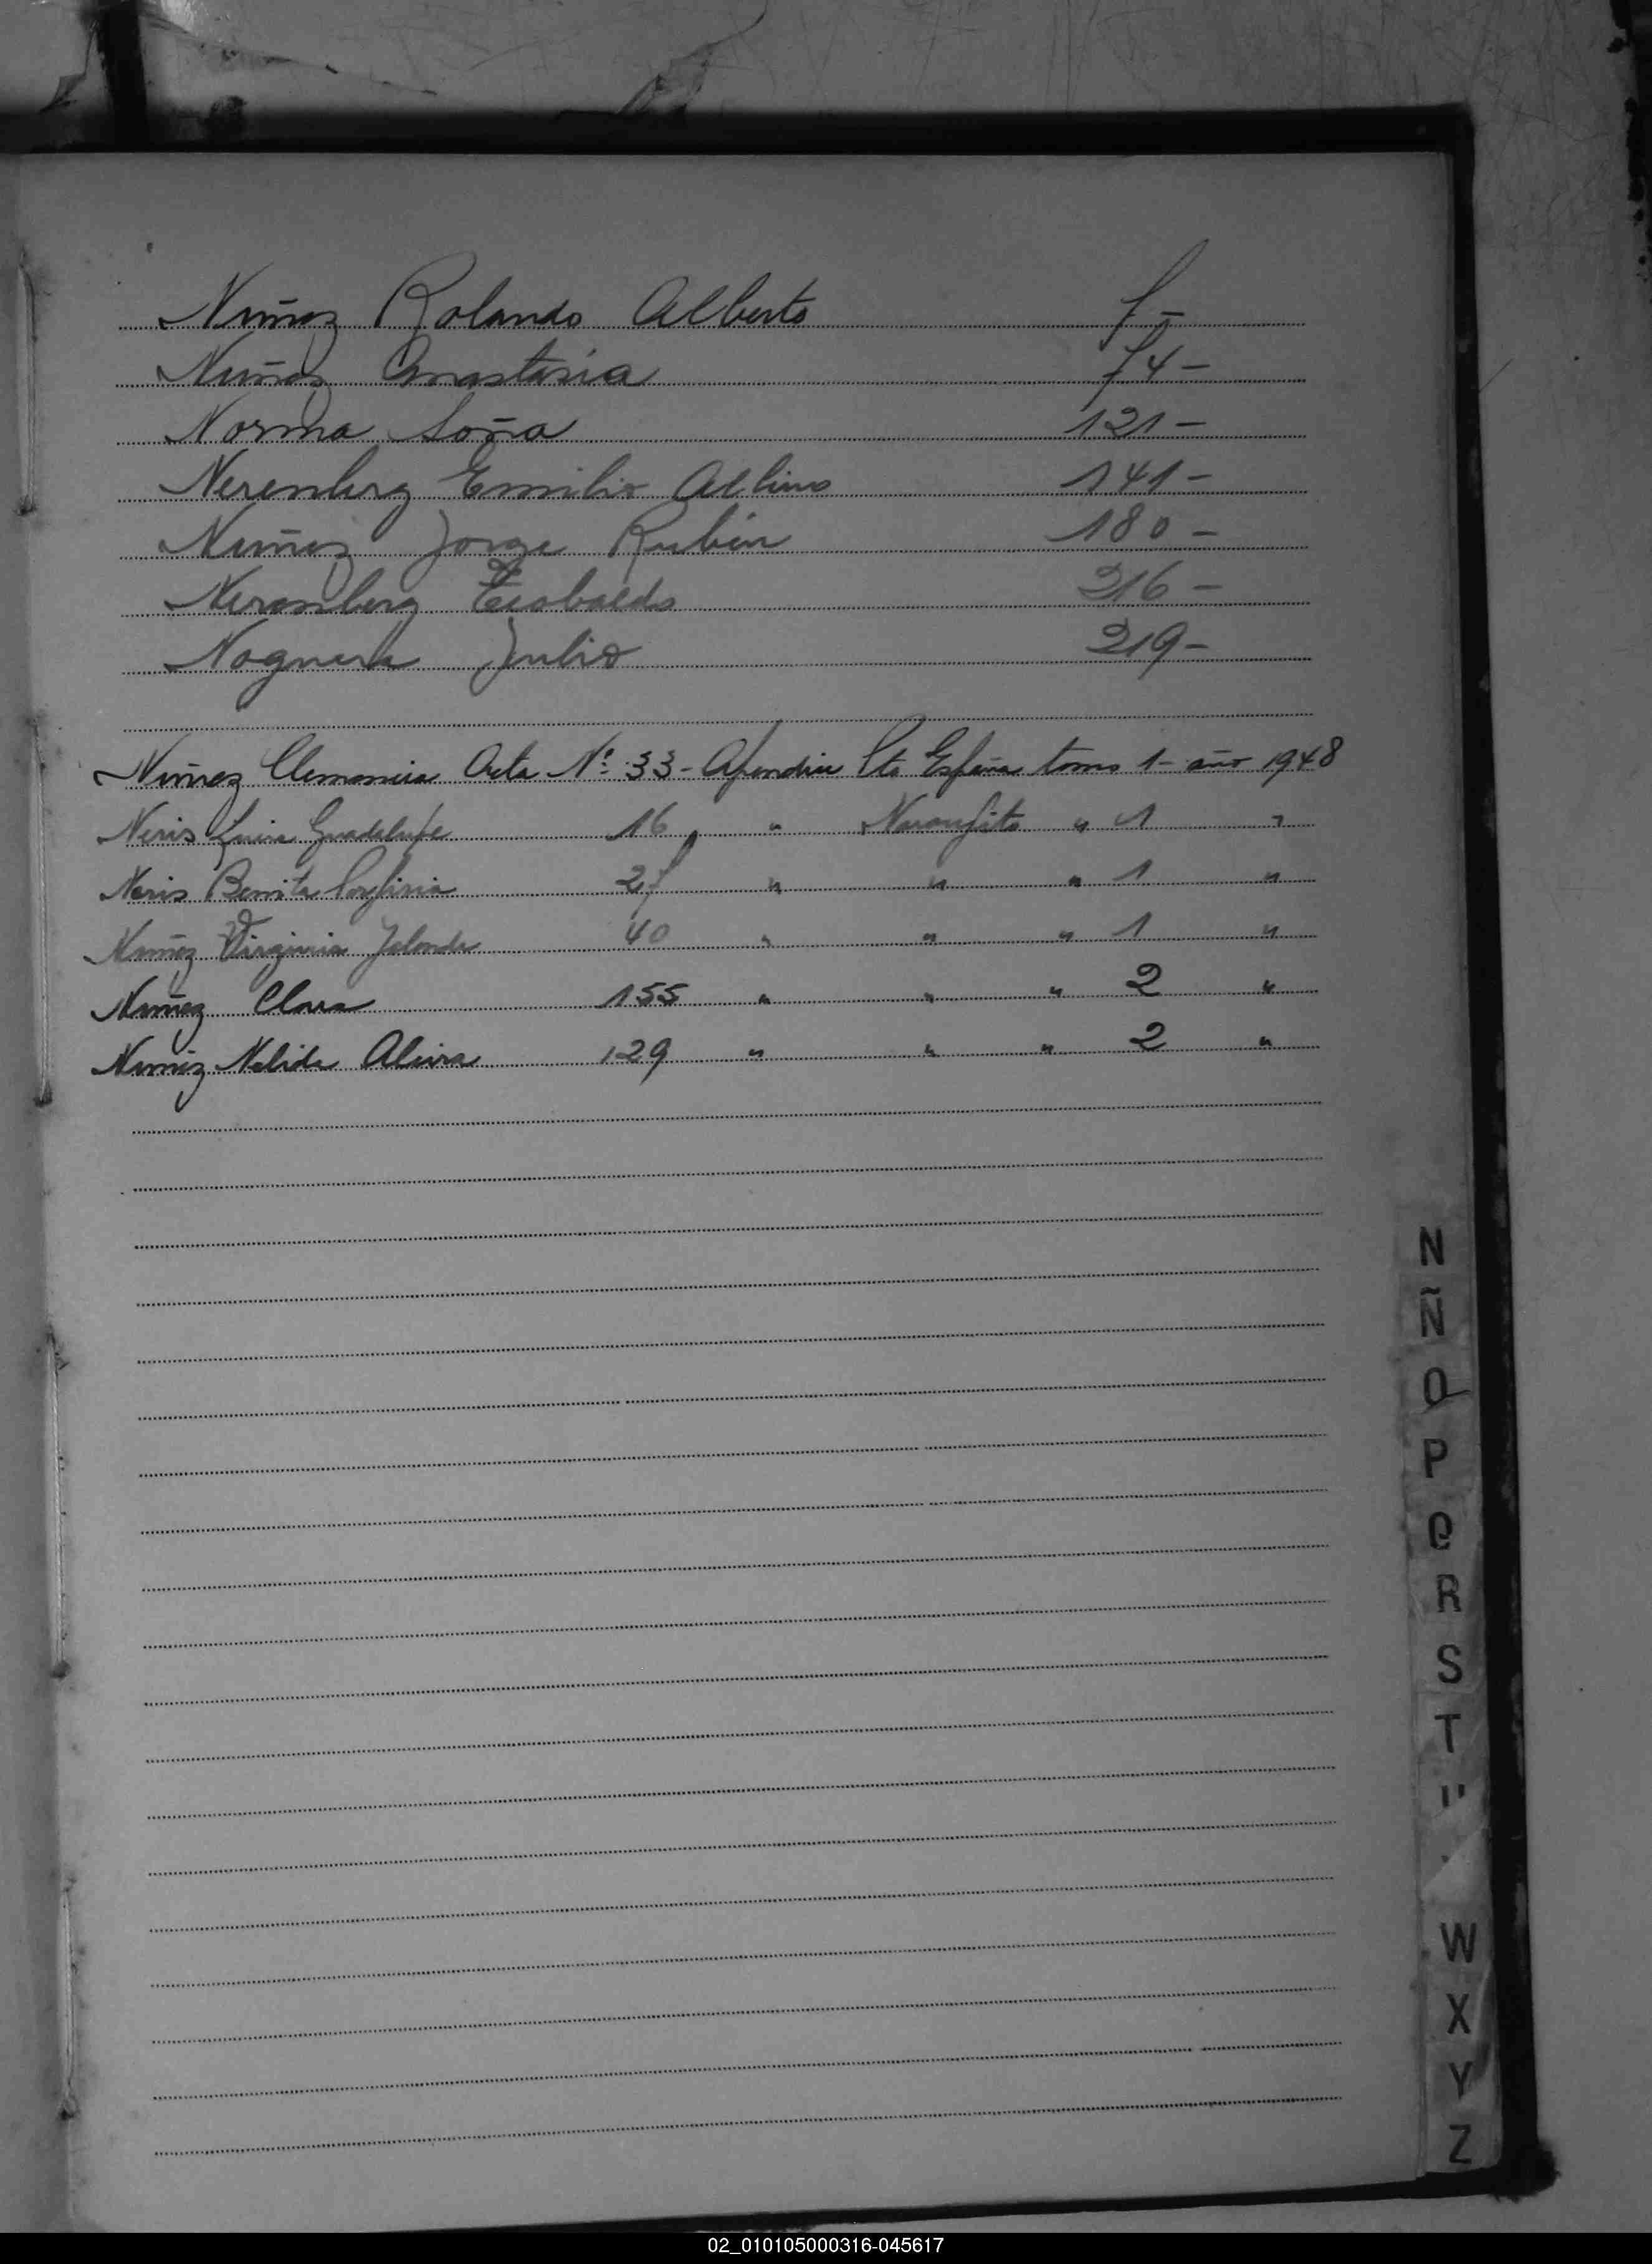 Nuñez Rolando Alberto 7-
Nuñez Anastasia 74-
Norma Soña 121-
Nerenberg Emilio Albino 141-
Nuñez Jorge Rubén 180-
Neremberg Teobaldo 216-
Noguera Julio 219-
Nuñez Clemencia Acta Nº 33- Apendice Pto España tomo 1- año 1948
Neris Luisa Guadalupe 16 " Naranjito " 1 "
Neris Benita Porfiria 27 " " " 1 "
Nuñez Virginia Jolanda 40 " " " 1 "
Nuñez Clara 155 " " " 2 "
Nuñez Nelida Alcira 129 " " " 2 "
N
Ñ
O
P
Q
R
S
T
W
X
Y
Z
02_010105000316-045617